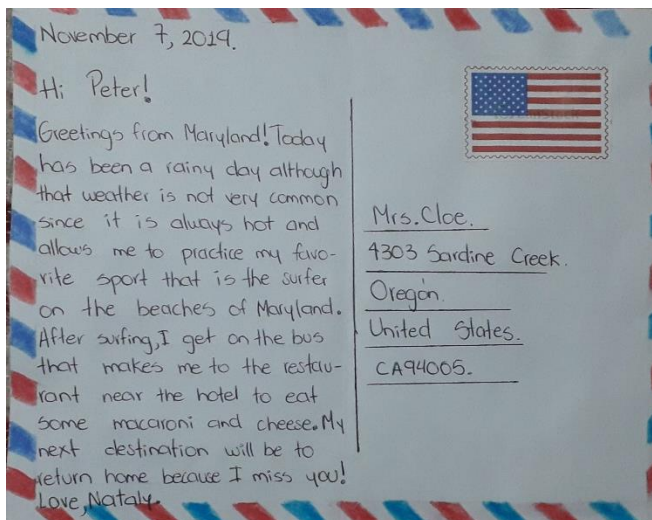 November 7, 2019.
Hi Peter!
Greetings from Maryland! Today
has been a rainy day although
that weather is not very common
since it is always hot and
allows me to practice my favo-
rite sport that is the surfer
on the beaches of Maryland.
After surfing, I get on the bus
that makes me to the restau-
rant near the hotel to eat
some macaroni and cheese. My
next destination will be to
return home because I miss you!
Love, Nataly.
Mrs. Cloe.
4303 Sardine Creek.
Oregón.
United States.
CA94005.